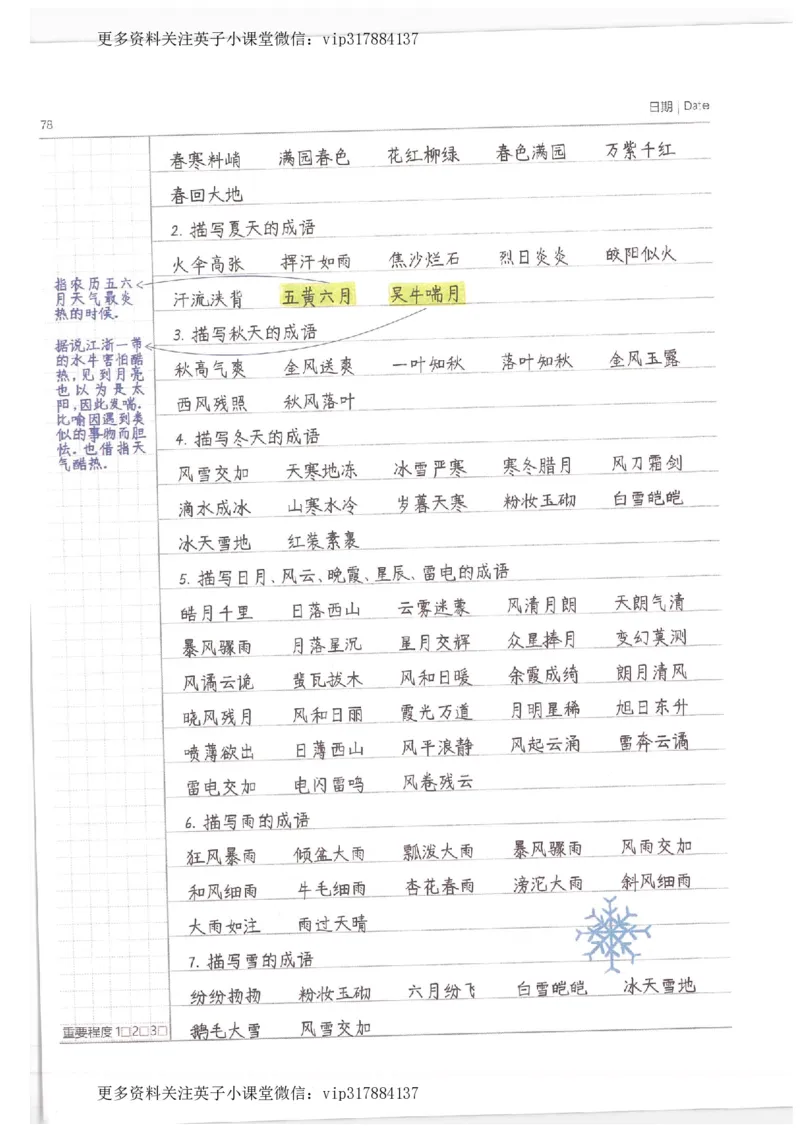 更多资料关注英子小课堂微信：vip317884137
日期 | Date
78
春寒料峭 满园春色 花红柳绿 春色满园 万紫千红
春回大地
2. 描写夏天的成语
火伞高张 挥汗如雨 焦沙烂石 烈日炎炎 皎阳似火
汗流浃背 五黄六月 吴牛喘月
指农历五六
月天气最炎
热的时候。
3. 描写秋天的成语
秋高气爽 金风送爽 一叶知秋 落叶知秋 金风玉露
西风残照 秋风落叶
据说江浙一带
的水牛害怕酷
热，见到月亮
也以为是太
阳，因此发喘。
比喻因遇到类
似的事物而胆
怯。也借指天
气酷热。
4. 描写冬天的成语
风雪交加 天寒地冻 冰雪严寒 寒冬腊月 风刀霜剑
滴水成冰 山寒水冷 岁暮天寒 粉妆玉砌 白雪皑皑
冰天雪地 红装素裹
5. 描写日月、风云、晚霞、星辰、雷电的成语
皓月千里 日落西山 云雾迷蒙 风清月朗 天朗气清
暴风骤雨 月落星沉 星月交辉 众星捧月 变幻莫测
风谲云诡 蜚瓦拔木 风和日暖 余霞成绮 朗月清风
晓风残月 风和日丽 霞光万道 月明星稀 旭日东升
喷薄欲出 日薄西山 风平浪静 风起云涌 雷奔云谲
雷电交加 电闪雷鸣 风卷残云
6. 描写雨的成语
狂风暴雨 倾盆大雨 瓢泼大雨 暴风骤雨 风雨交加
和风细雨 牛毛细雨 杏花春雨 滂沱大雨 斜风细雨
大雨如注 雨过天晴
7. 描写雪的成语
纷纷扬扬 粉妆玉砌 六月纷飞 白雪皑皑 冰天雪地
鹅毛大雪 风雪交加
重要程度 1□2□3□
更多资料关注英子小课堂微信：vip317884137